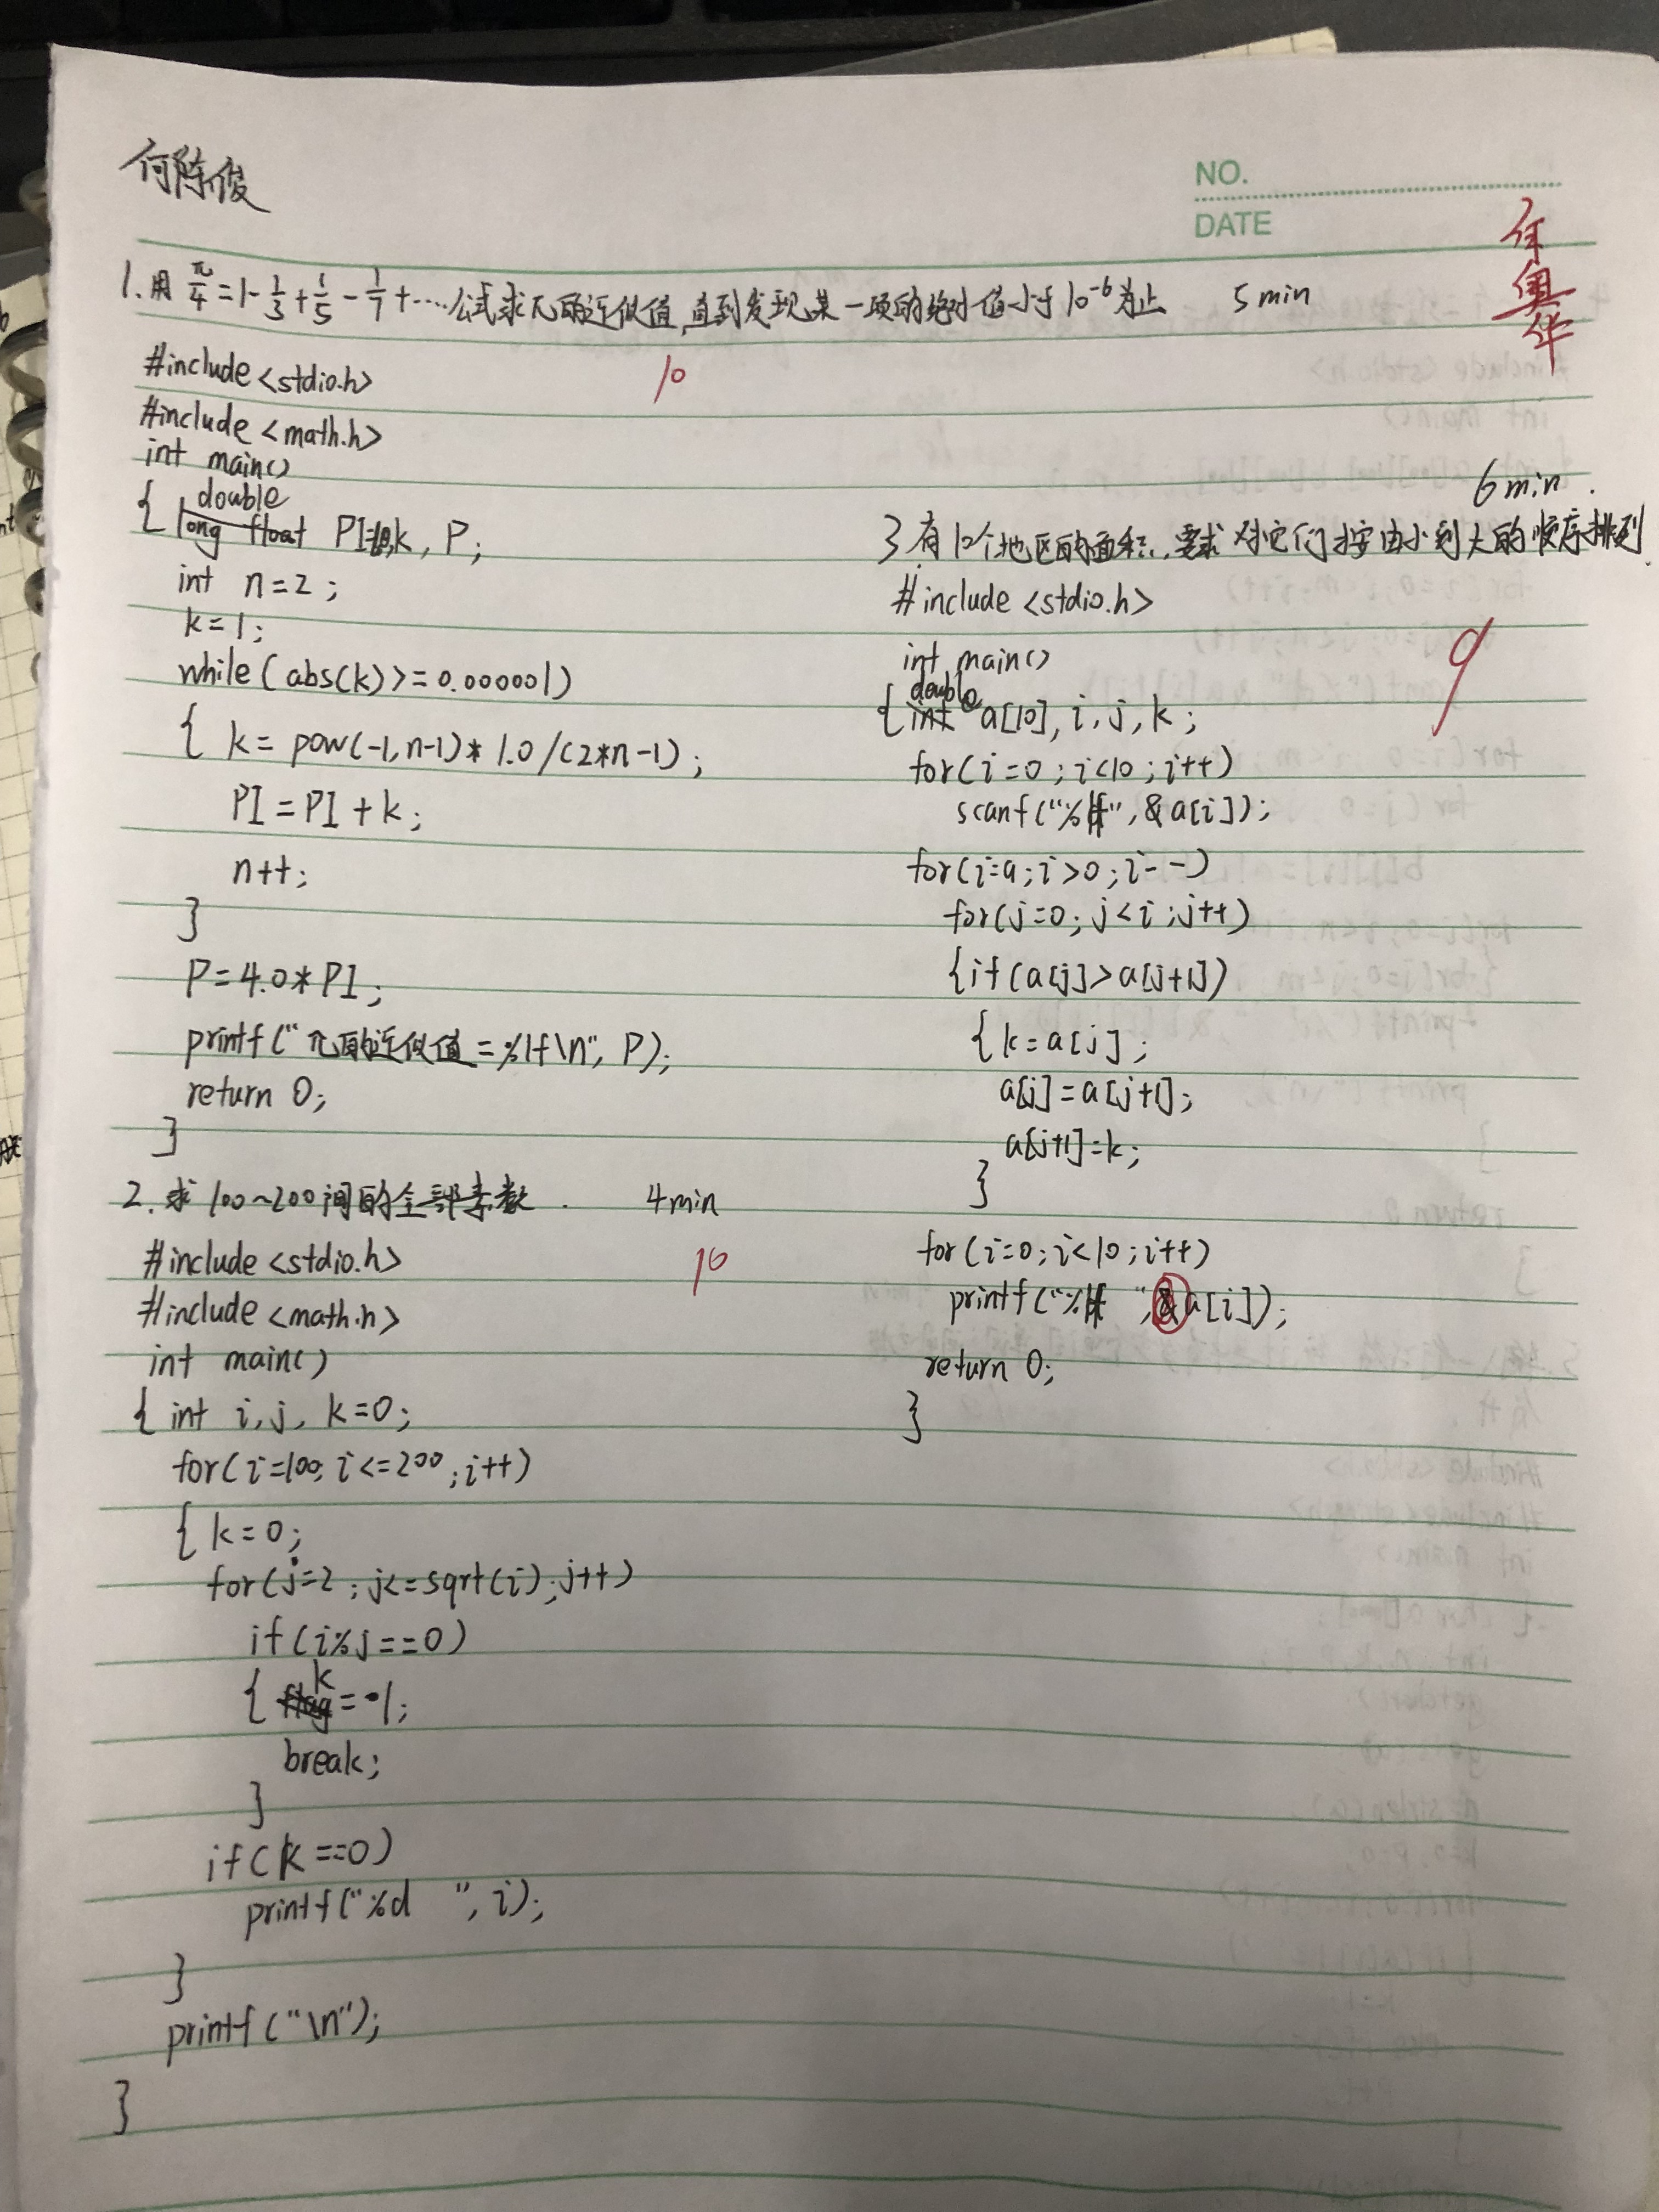 何陈俊
NO.
DATE
何奥华
1.用 π/4=1-1/3+1/5-1/7+……公式求π的近似值,直到发现某一项的绝对值小于10⁻⁶为止 5min
10
#include<stdio.h>
#include<math.h>
int main()
{ double PI=1.0,k,P;
int n=2;
k=1;
while(abs(k)>=0.000001)
{ k=pow(-1,n-1)*1.0/(2*n-1);
PI=PI+k;
n++;
}
P=4.0*PI;
printf("π的近似值=%lf\n",P);
return 0;
}
2.求100~200间的全部素数. 4min
10
#include<stdio.h>
#include<math.h>
int main()
{ int i,j,k=0;
for(i=100;i<=200;i++)
{ k=0;
for(j=2;j<=sqrt(i);j++)
if(i%j==0)
{ k=1;
break;
}
if(k==0)
printf("%d ",i);
}
printf("\n");
}
6min.
3.有10个地区的面积,要求对它们按由小到大的顺序排列.
9
#include<stdio.h>
int main()
{double a[10],i,j,k;
for(i=0;i<10;i++)
scanf("%lf",&a[i]);
for(i=9;i>0;i--)
for(j=0;j<i;j++)
{if(a[j]>a[j+1])
{k=a[j];
a[j]=a[j+1];
a[j+1]=k;
}
for(i=0;i<10;i++)
printf("%lf ",&a[i]);
return 0;
}